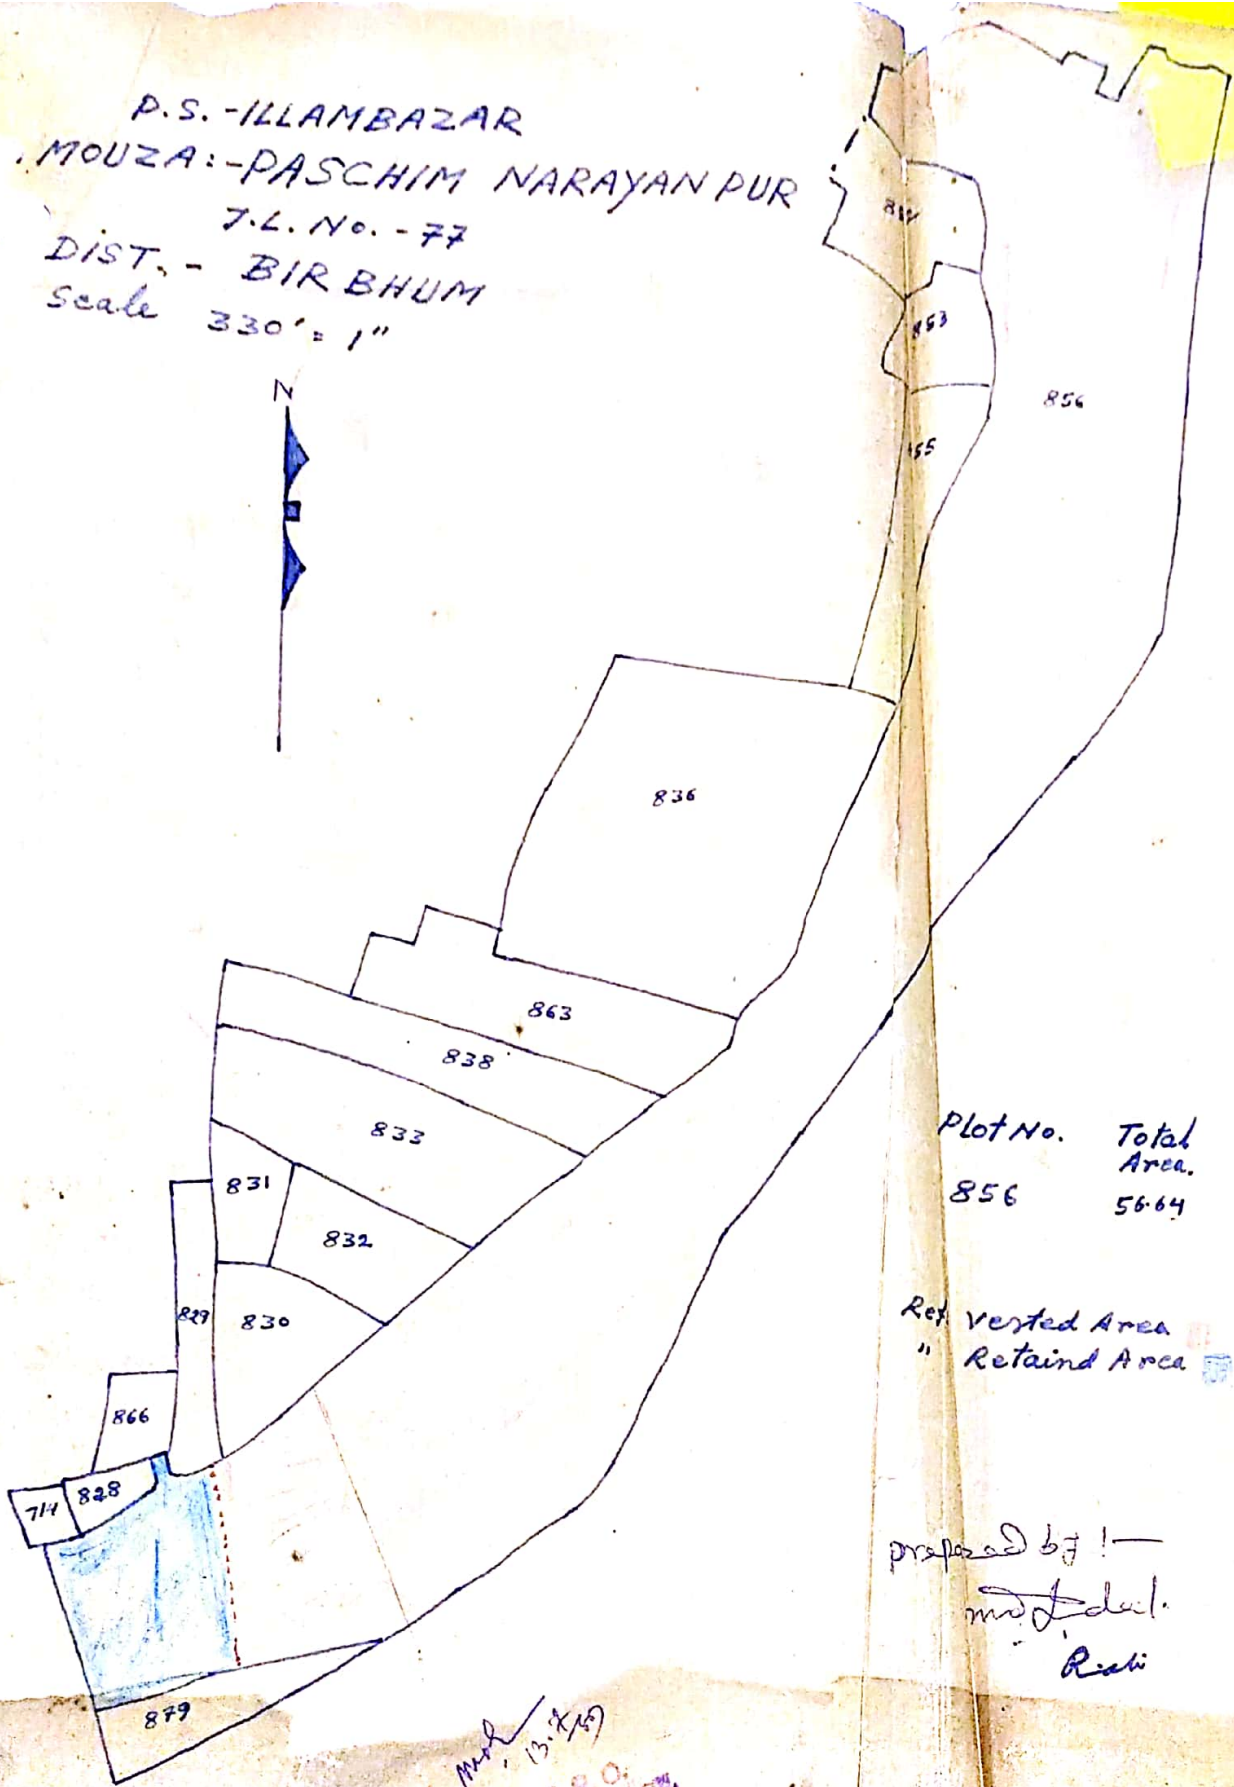 P.S. -ILLAMBAZAR
MOUZA:-PASCHIM NARAYANPUR
J.L. No. - 77
DIST. - BIRBHUM
Scale 330' = 1"
N
853
856
836
863
838
833
831
832
829
830
866
828
714
879
Plot No. Total Area.
856 56.64
Ref vested Area
" Retaind Area
prepared by :—